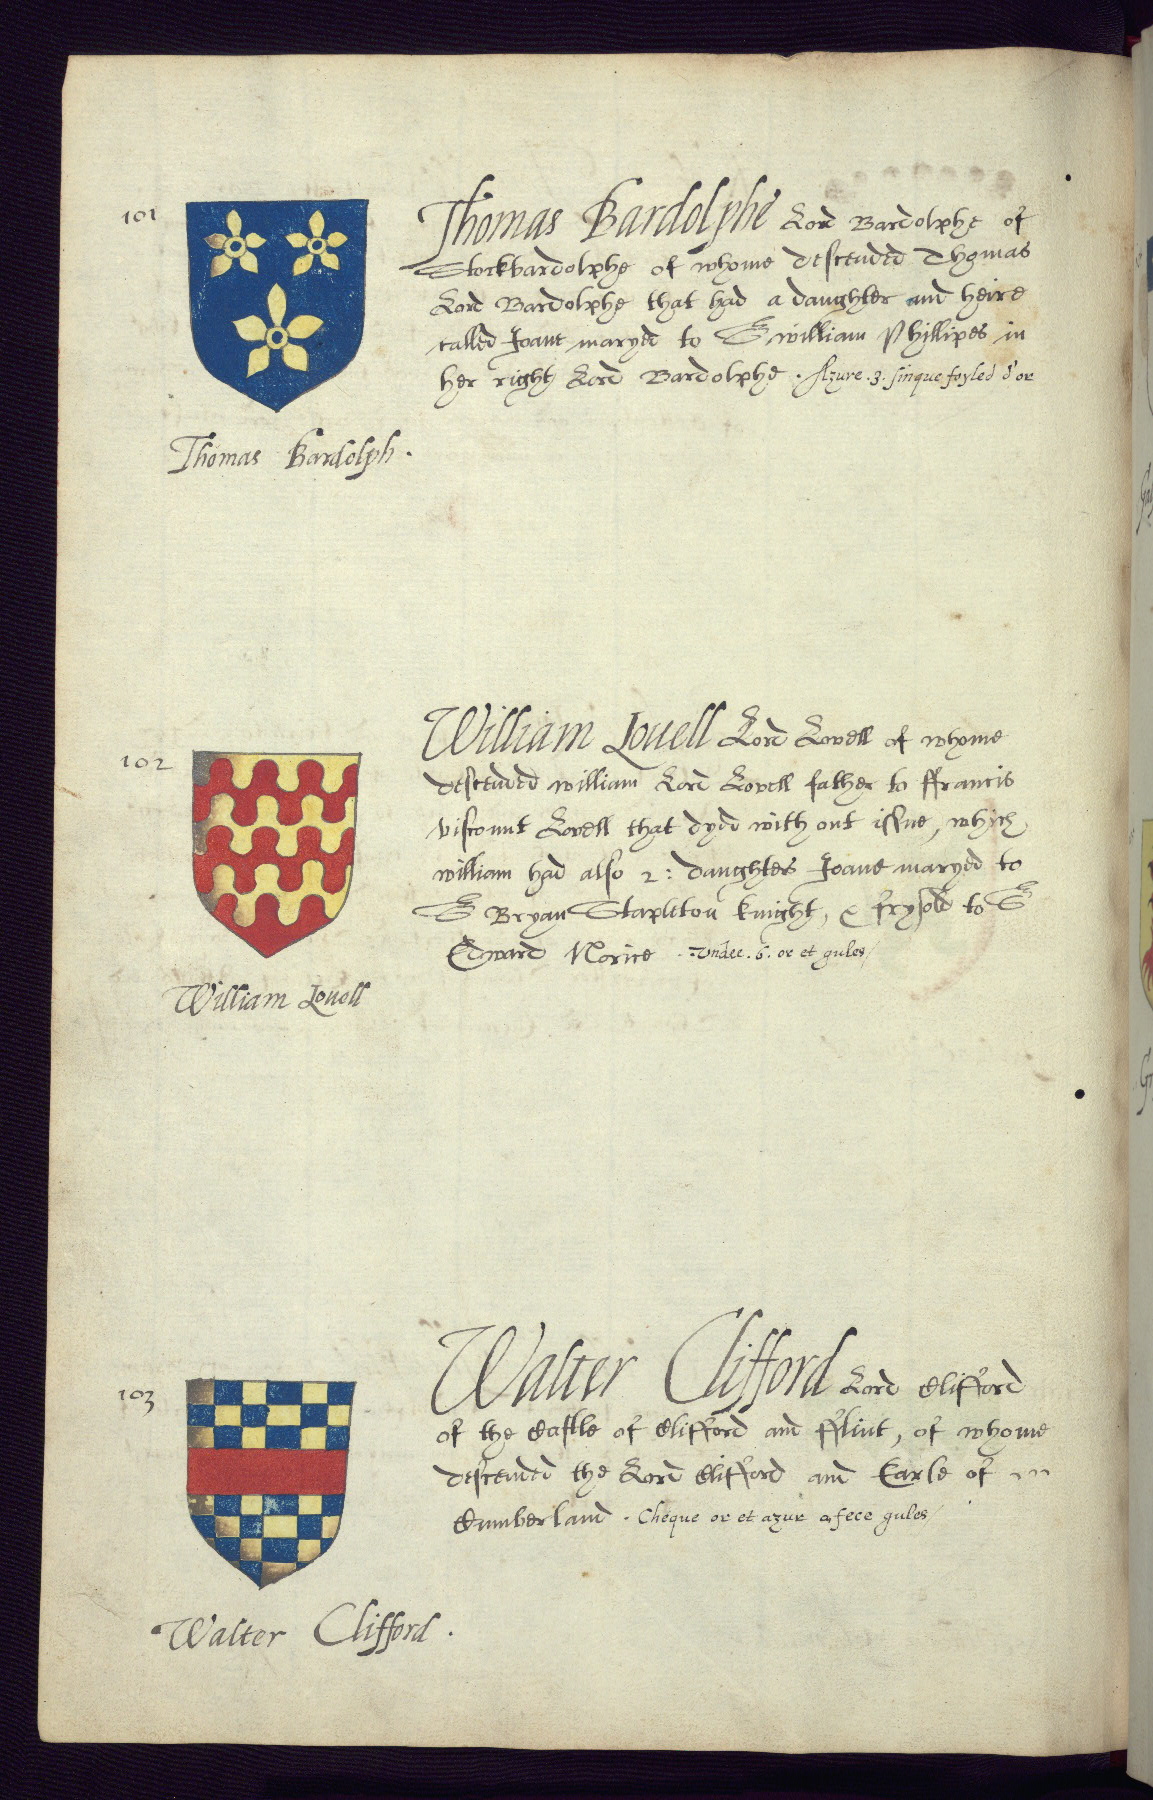 101
Thomas Bardolphe Lord Bardolphe of
Stockbardolphe of whome descended Thomas
Lord Bardolphe that had a daughter and heire
called Joane maryed to Sr william Phillipes in
her right Lord Bardolphe . Azure .3. sinquefoyled d'or
Thomas Bardolph .
102
William Louell Lord Lovell of whome
descended william Lord Lovell father to ffrancis
viscount Lovell that dyed with out issue, which
william had also 2: daughters Joane maryed to
Sr Bryan Stapleton knight, & frysold to Sr
Edward Norice . Vndee . 6. or et gules/
William Louell
103
Walter Clifford Lord Clifford
of the Castle of Clifford and fflint, of whome
descended the Lord Clifford and Earle of
Cumberland . Cheque or et azur a fece gules/
Walter Clifford .